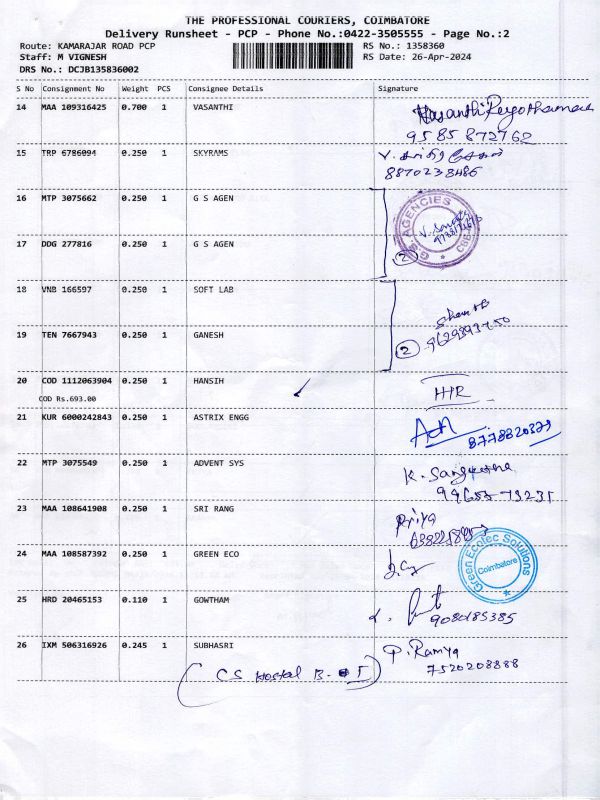 THE PROFESSIONAL COURIERS, COIMBATORE
Delivery Runsheet - PCP - Phone No.:0422-3505555 - Page No.:2
Route: KAMARAJAR ROAD PCP RS No.: 1358360
Staff: M VIGNESH RS Date: 26-Apr-2024
DRS No.: DCJB135836002
S No Consignment No Weight PCS Consignee Details Signature
14 MAA 109316425 0.700 1 VASANTHI
9585872762
15 TRP 6786094 0.250 1 SKYRAMS
8870238486
16 MTP 3075662 0.250 1 G S AGEN
G.S. AGENCIES
17 DDG 277816 0.250 1 G S AGEN
2
18 VNB 166597 0.250 1 SOFT LAB
19 TEN 7667943 0.250 1 GANESH
2
20 COD 1112063904 0.250 1 HANSIH
COD Rs.693.00
21 KUR 6000242843 0.250 1 ASTRIX ENGG
8778820379
22 MTP 3075549 0.250 1 ADVENT SYS
K. Sangeetha
23 MAA 108641908 0.250 1 SRI RANG Priya
24 MAA 108587392 0.250 1 GREEN ECO
Green Ecotec Solutions
Coimbatore
25 HRD 20465153 0.110 1 GOWTHAM
9080185385
26 IXM 506316926 0.245 1 SUBHASRI P. Ramya
7520208888
(CS Hostel B- I)